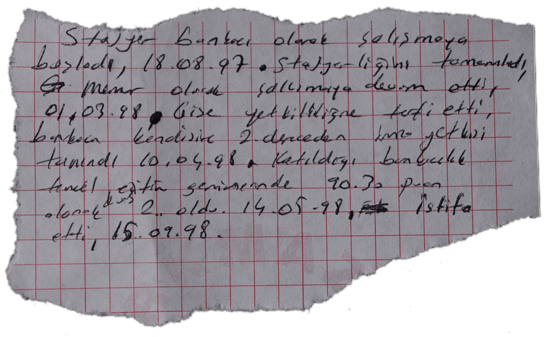 Stajyer bankacı olarak çalışmaya
başladı, 18.08.97. Stajyerliğini tamamladı,
memur olarak çalışmaya devam etti,
01.03.98. Gişe yetkililiğine terfi etti,
banka kendisine 2. dereceden imza yetkisi
tanındı 10.04.98. Katıldığı bankacılık
temel eğitim seminerinde 90.30 puan
alarak 2. oldu. 14.05.98, İstifa
etti, 15.09.98.